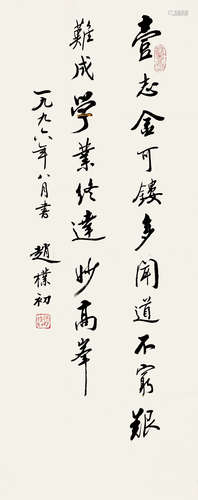 壹志金可鏤多聞道不窮艱
難成學業終達妙高峯
一九九六年八月書
趙樸初